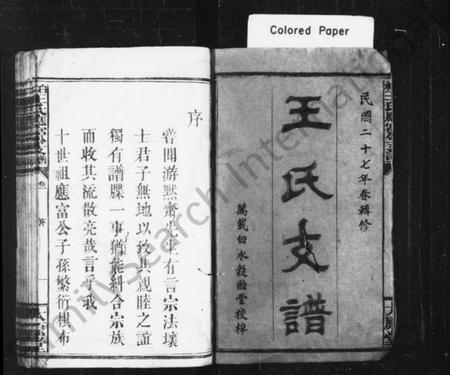 Colored Paper
民國二十七年春輯修
王氏支譜
萬載白水穀貽堂校梓
序
嘗聞游默齋先生有言宗法壞
士君子無地以致其親睦之誼
獨有譜牒一事猶能糾合宗族
而收其流散亮哉言乎我
十世祖應富公子孫繁衍棋布
FamilySearch International